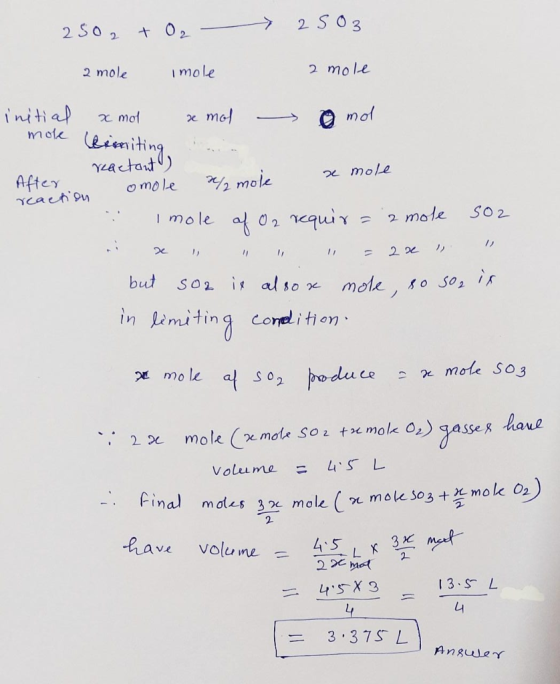 2SO2 + O2 ⟶ 2SO3
2 mole 1 mole 2 mole
initial mole x mol (Limiting reactant) x mol ⟶ 0 mol
After reaction 0 mole x/2 mole x mole
∵ 1 mole of O2 requir = 2 mole SO2
∴ x " " " " = 2x " "
but SO2 is also x mole, so SO2 is
in limiting condition.
x mole of SO2 produce = x mole SO3
∵ 2x mole (x mole SO2 + x mole O2) gasses have
volume = 4.5 L
∴ Final moles 3x/2 mole (x mole SO3 + x/2 mole O2)
have volume = 4.5/2x mol L × 3x/2 mol
= 4.5×3/4 = 13.5 L/4
= 3.375 L Answer